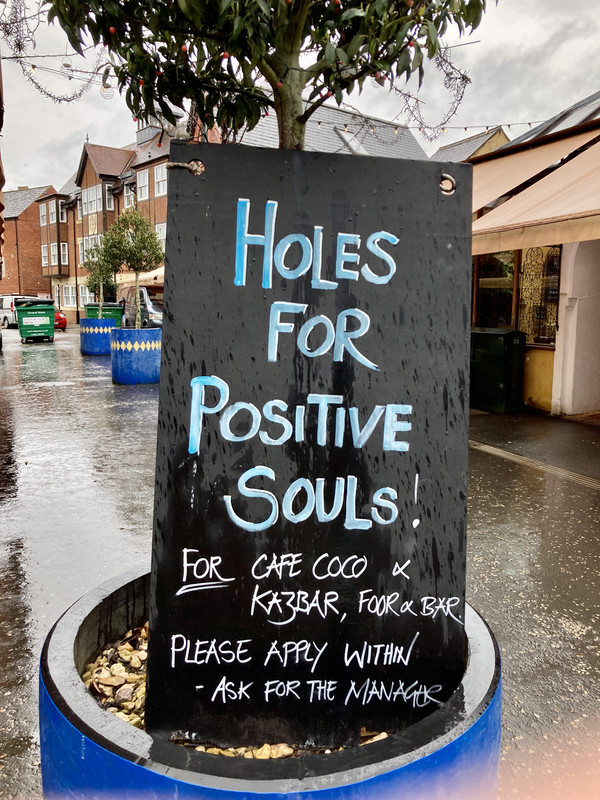 HOLES
FOR
POSITIVE
SOULS!
FOR CAFE COCO &
KAZBAR, FOOR & BAR.
PLEASE APPLY WITHIN
- ASK FOR THE MANAGER